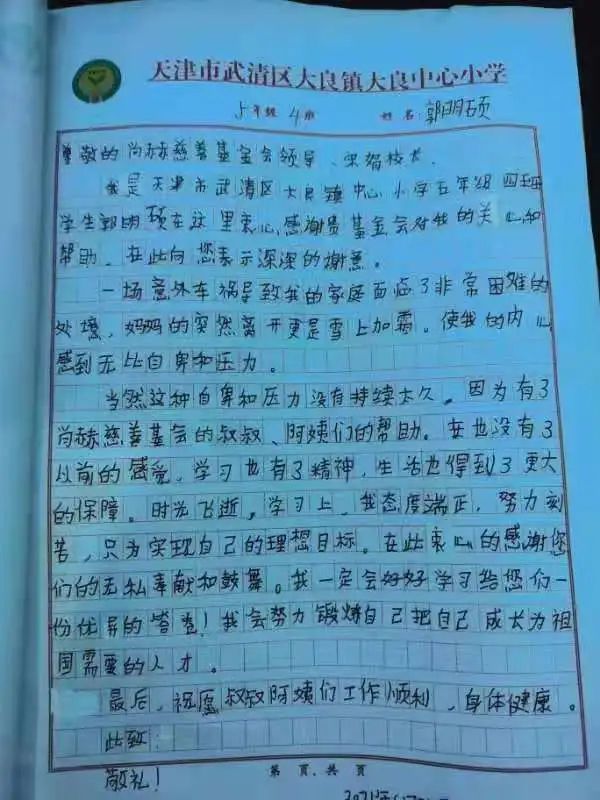 天津市武清区大良镇大良中心小学
5年级 4班 姓名 郭明硕
尊敬的尚赫慈善基金会领导、宋智校长
我是天津市武清区大良镇中心小学五年级四班
学生郭明硕在这里衷心感谢贵基金会对我的关心和
帮助。在此向您表示深深的谢意。
一场意外车祸导致我的家庭面临了非常困难的
处境,妈妈的突然离开更是雪上加霜。使我的内心
感到无比自卑和压力。
当然这种自卑和压力没有持续太久。因为有了
尚赫慈善基会的叔叔、阿姨们的帮助。在也没有了
以前的感觉,学习也有了精神,生活也得到了更大
的保障。时光飞逝。学习上,我态度端正,努力刻
苦,只为实现自己的理想目标。在此衷心的感谢您
们的无私奉献和鼓舞。我一定会好好学习给您们一
份优异的答卷!我会努力锻炼自己把自己成长为祖
国需要的人才。
最后,祝愿叔叔阿姨们工作顺利,身体健康。
此致!
敬礼!
第 页,共 页